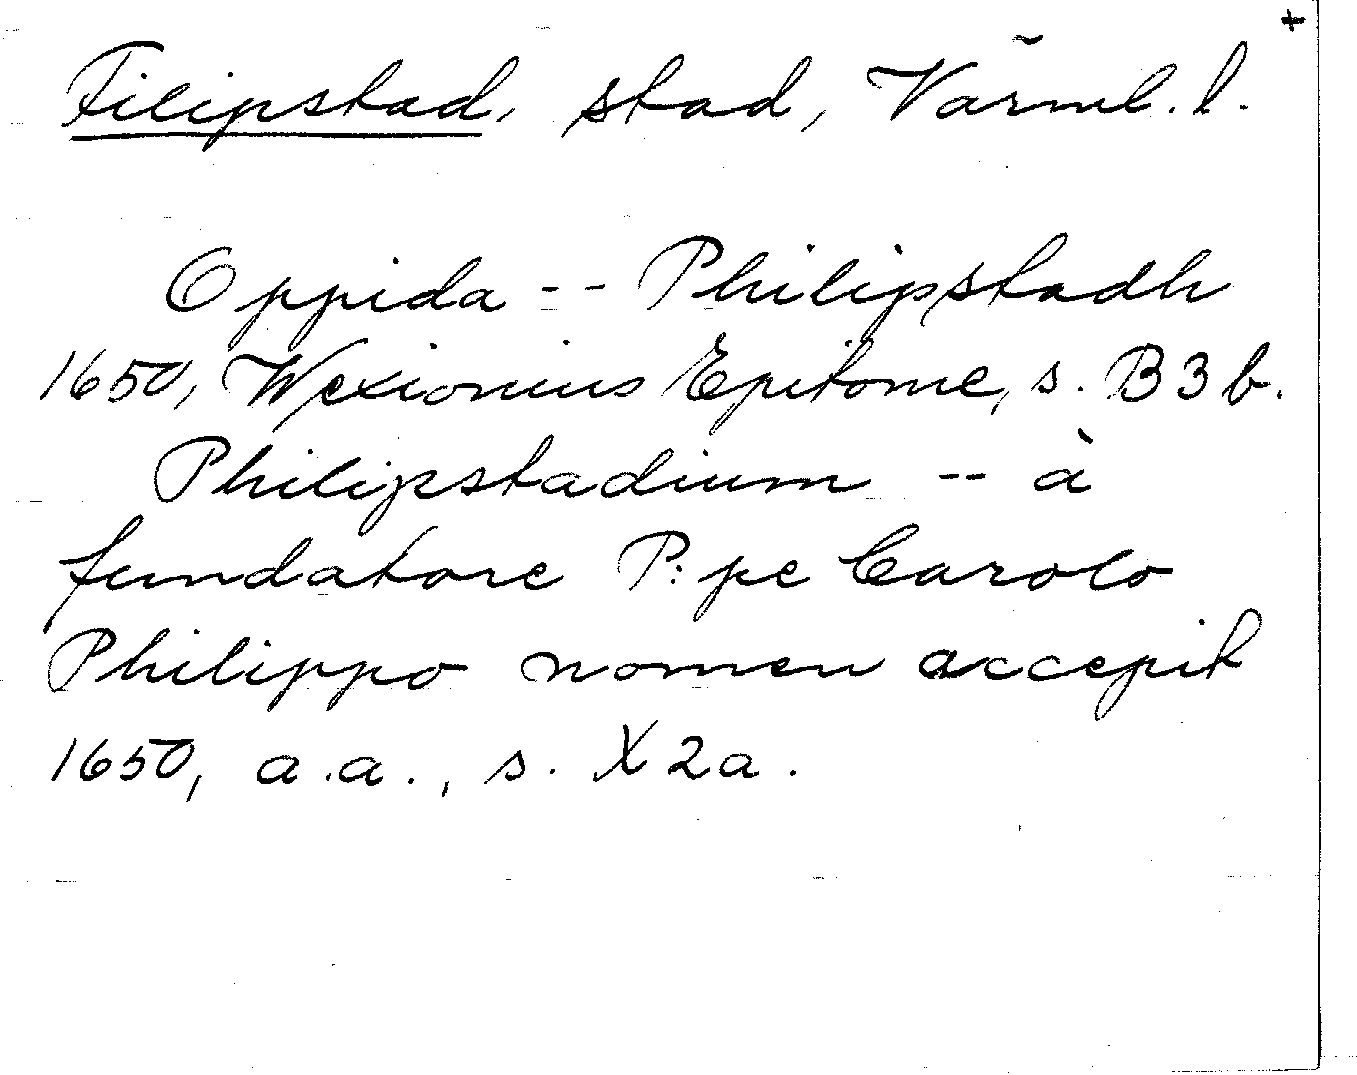 +
Filipstad, stad, Värml. l.
Oppida -- Philipstadh
1650, Wexionius Epitome, s. B3b.
Philipstadium -- à
fundatore P:pe Carolo
Philippo nomen accepit
1650, a.a., s. X2a.